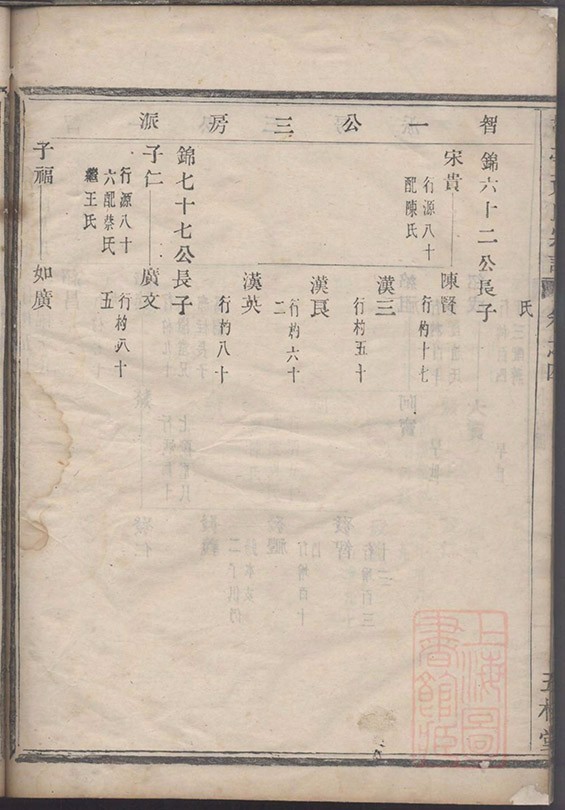 智一公三房派
氏
錦六十二公長子
宋貴
陳賢
行源八十
配陳氏
行杓十七
漢三
行杓五十
漢良
行杓六十
二
漢英
行杓八十
錦七十七公長子
子仁
廣文
行源八十
六配蔡氏
繼王氏
行杓八十
五
子福
如廣
上海圖
書館藏